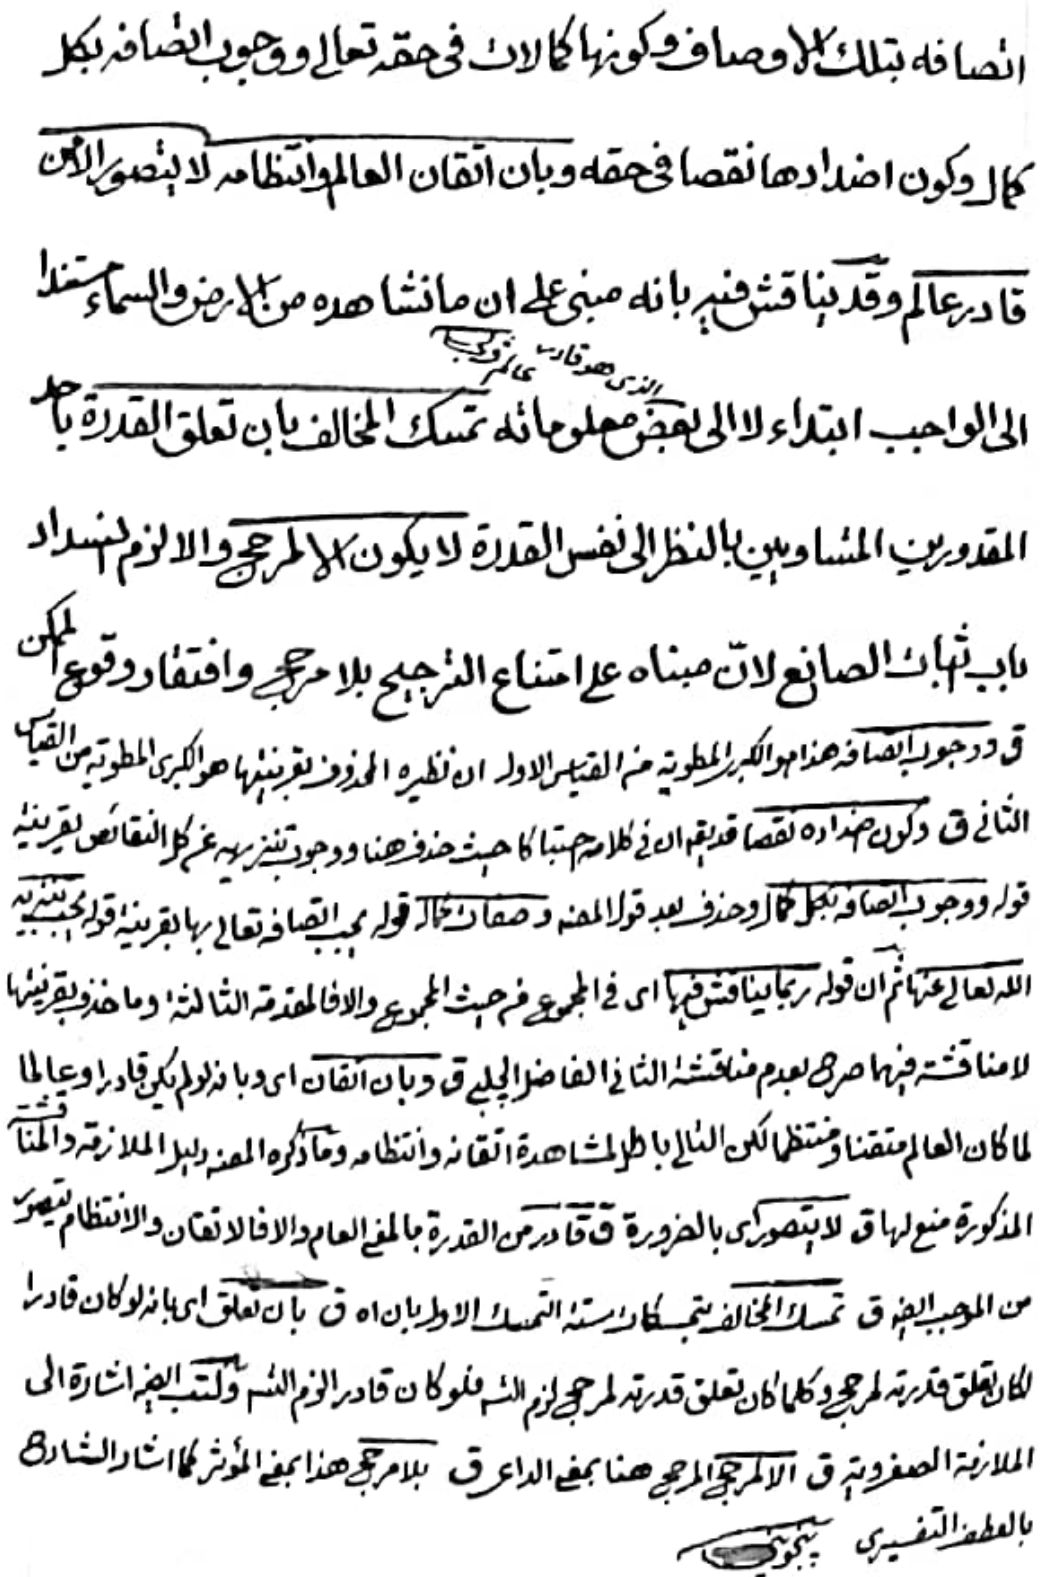 اتصافه بتلك الاوصاف وكونها كمالات فى حقه تعالى ووجوب اتصافه بكل
كمال وكون اضدادها نقصا فى حقه وبان اتقان العالم وانتظامه لا يتصور الا من
قادر عالم وقد يناقش فيه بانه مبنى على ان ما نشاهده من الارض والسماء مستندا
الذى هو قادر عالم
الى الواجب ابتداء لا الى بعض معلولاته تمسك المخالف بان تعلق القدرة باحد
المقدورين المتساويين بالنظر الى نفس القدرة لا يكون الا لمرجح والا لزم انسداد
باب اثبات الصانع لانّ مبناه على امتناع الترجيح بلا مرجح وافتقار وقوع الممكن
ق ووجوب اتصافه هذا هو الكبرى المطوية من القياس الاول ان نظيره المحذوف بقرينتها هو الكبرى المطوية من القياس
الثانى ق وكون اضداده نقصا قد يقه ان فى كلامه احتباكا حيث حذف هنا ووجوب تنزيهه عن كل النقائص بقرينة
قوله ووجوب اتصافه بكل كمال وحذف بعد قول المصنه وصفات كمال قوله يجب اتصافه تعالى بها بقرينة قوله يجب تنزيه
الله تعالى عنها ثم ان قوله ربما يناقش فيها اى فى المجموع من حيث المجموع والا فالمقدمة الثالثة وما حذف بقرينتها
لا مناقشة فيهما صرح بعدم مناقشة الثانى الفاضل الچلبى ق وبان اتقان اى وبانه لو لم يكن قادرا وعالما
لما كان العالم متقنا ومنتظما لكن التالى باطل لمشاهدة اتقانه وانتظامه وما ذكره المصنه دليل الملازمة والمناقشة
المذكورة منع لها ق لا يتصور اى بالضرورة ق قادر من القدرة بالمعنى العام والا فالاتقان والانتظام يتصور
من الموجب ايضه ق تمسك المخالف بتمسكات ستة التمسك الاول بان اه ق بان تعلق اى بانه لو كان قادرا
لكان تعلق قدرته لمرجح وكلما كان تعلق قدرته لمرجح لزم التسه فلو كان قادرا لزم التسه وكتب ايضه اشارة الى
الملازمة الصغروية ق الا لمرجح المرجح هنا بمعنى الداعى ق بلا مرجح هذا بمعنى المؤثر كما اشار الشارح
بالعطف التفسيرى پنجوينى